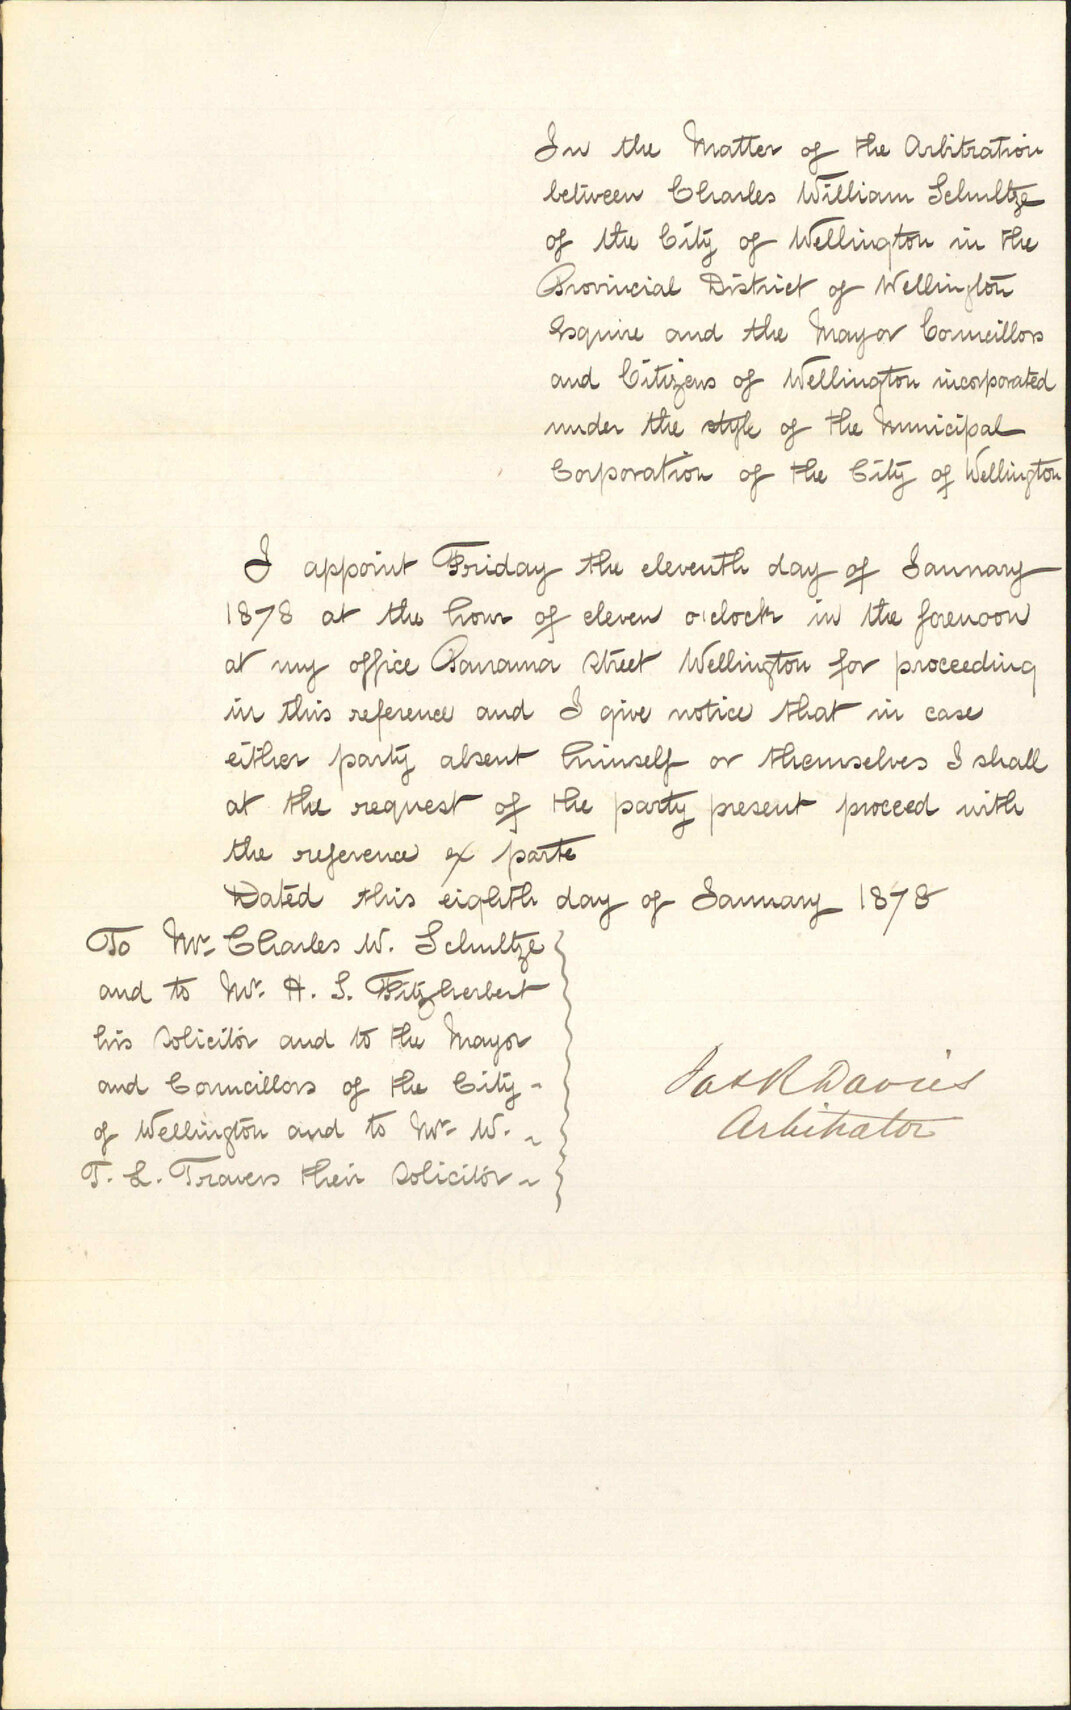 In the Matter of the Arbitration
between Charles William Schultze
of the City of Wellington in the
Provincial District of Wellington
Esquire and the Mayor Councillors
and Citizens of Wellington incorporated
under the style of the Municipal
Corporation of the City of Wellington
I appoint Friday the eleventh day of January
1878 at the hour of eleven o'clock in the forenoon
at my office Panama Street Wellington for proceeding
in this reference and I give notice that in case
either party absent himself or themselves I shall
at the request of the party present proceed with
the reference ex parte
Dated this eighth day of January 1878
To Mr. Charles W. Schultze
and to Mr. H. S. Fitzherbert
his Solicitor and to the Mayor
and Councillors of the City
of Wellington and to Mr. W.
T. L. Travers their Solicitor
Davies
Arbitrator